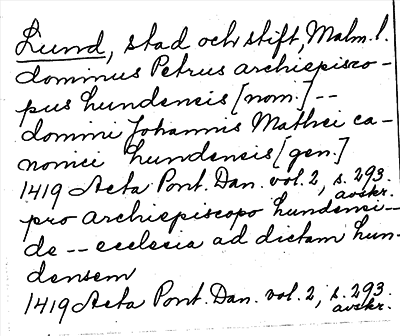 Lund, stad och stift, Malm. l.
dominus Petrus archiepisco-
pus lundensis [nom.] --
domini Johannis Mathei ca-
nonici lundensis [gen.]
1419 Acta Pont. Dan. vol. 2, s. 293.
avskr.
pro archiepiscopo lundensi--
de -- ecclesia ad dictam lun-
densem
1419 Acta Pont. Dan. vol. 2, s. 293.
avskr.